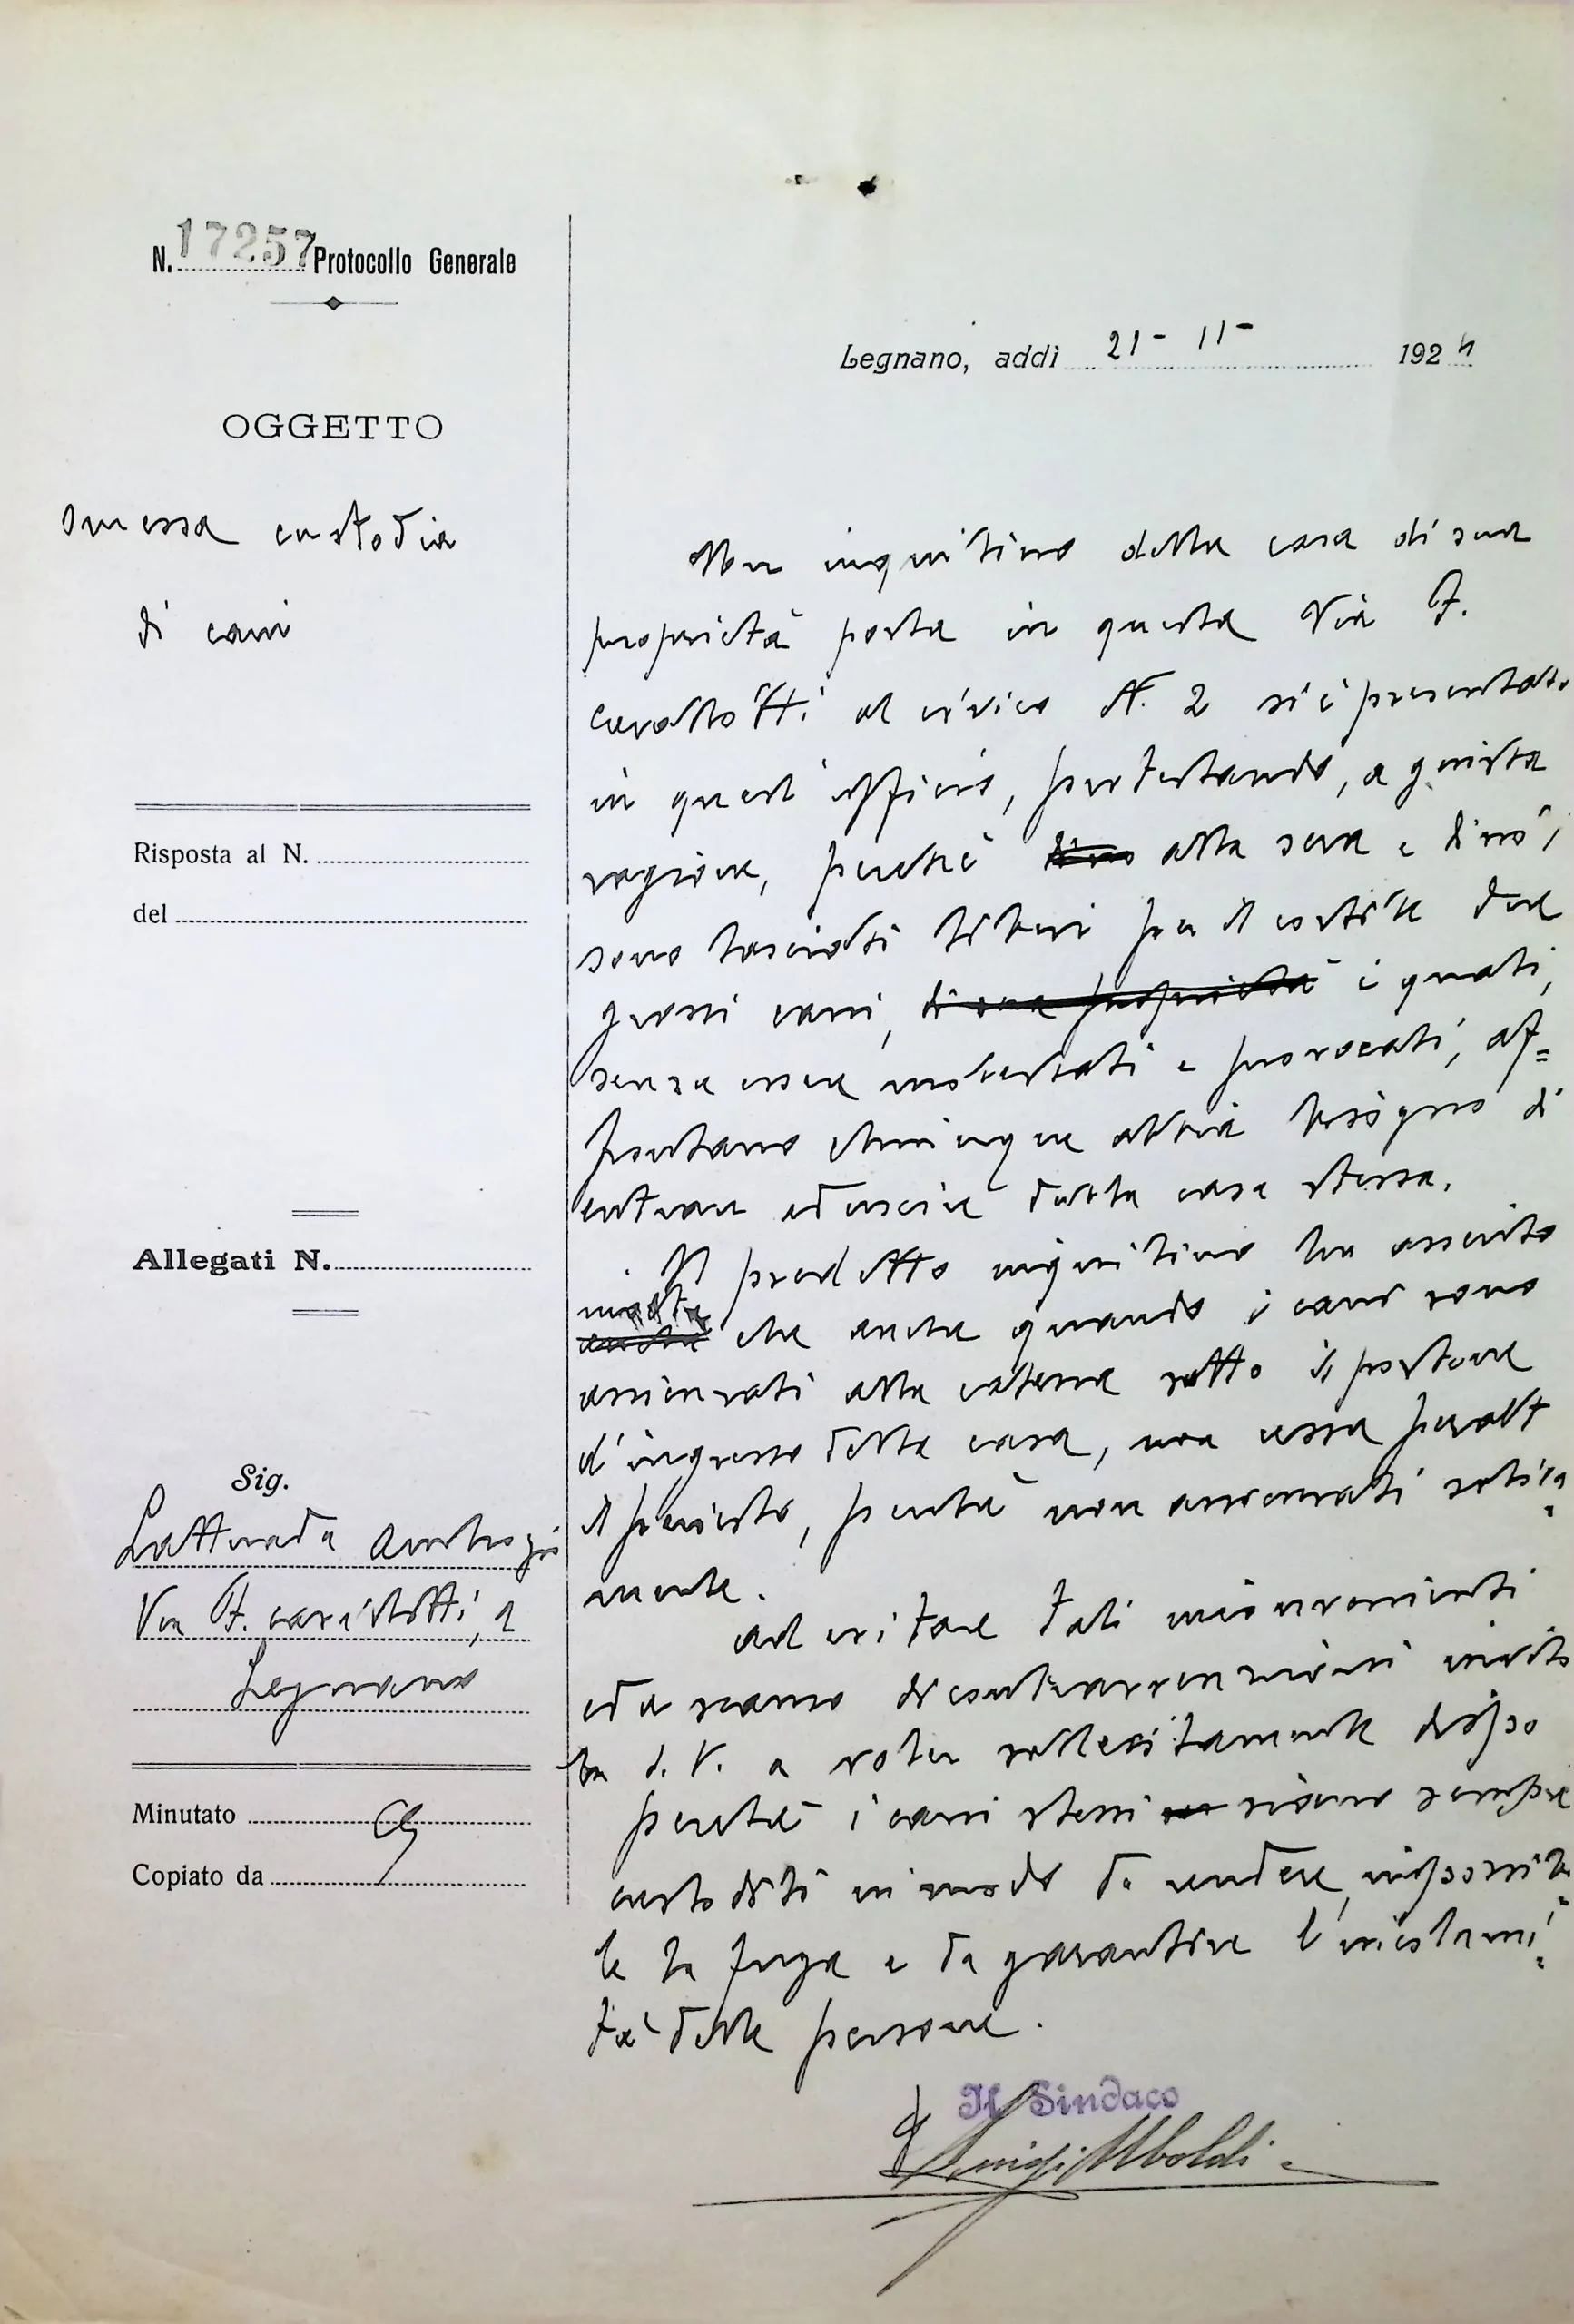 N. 17257 Protocollo Generale
Legnano, addì 21 - 11 - 1924
OGGETTO
Omessa custodia
di cani
Risposta al N.
del
Allegati N.
Sig.
Lattuada Ambrogio
Via F. Cavallotti, 2
Legnano
Minutato
Copiato da
Un inquilino della casa di sua
proprietà posta in questa Via F.
Cavallotti al civico N. 2 si è presentato
in quest'ufficio, protestando, a giusta
ragione, perchè alla sera e
sono lasciati liberi per il cortile due
grossi cani, di sua proprietà i quali,
senza essere molestati e provocati, af=
frontano chiunque abbia bisogno di
entrare ed uscire dalla casa stessa.
Il predetto inquilino ha asserito
inoltre che anche quando i cani sono
assicurati alla catena sotto il portone
d'ingresso della casa, non cessa
il pericolo, perchè non assicurati solida=
mente.
Ad evitare tali inconvenienti
ed a scanso di contravvenzioni invito
la S. V. a voler sollecitamente disporre
perchè i cani stessi siano sempre
custoditi in modo da rendere impossibi=
le la fuga e da garantire l'incolumi=
tà delle persone.
Il Sindaco
Luigi Uboldi